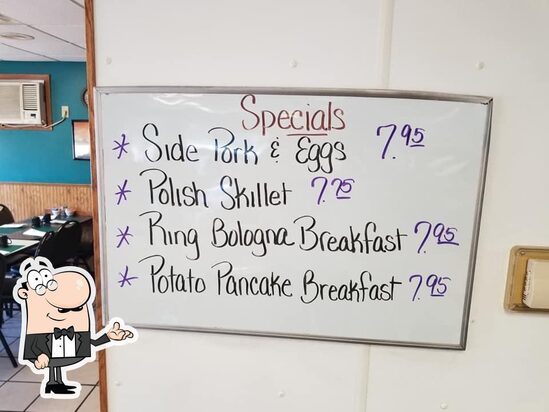 Specials
* Side Pork & Eggs 7.95
* Polish Skillet 7.75
* Ring Bologna Breakfast 7.95
* Potato Pancake Breakfast 7.95